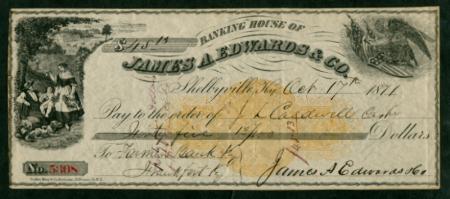 $45 13
BANKING HOUSE OF
JAMES A. EDWARDS & CO.
Shelbyville, Ky. Oct 17th 1871
Pay to the order of J L Caldwell Cashr
Forty five 13/100 Dollars
To Farmers Bank Ky
Frankfort Ky
James A Edwards & Co
No. 5308